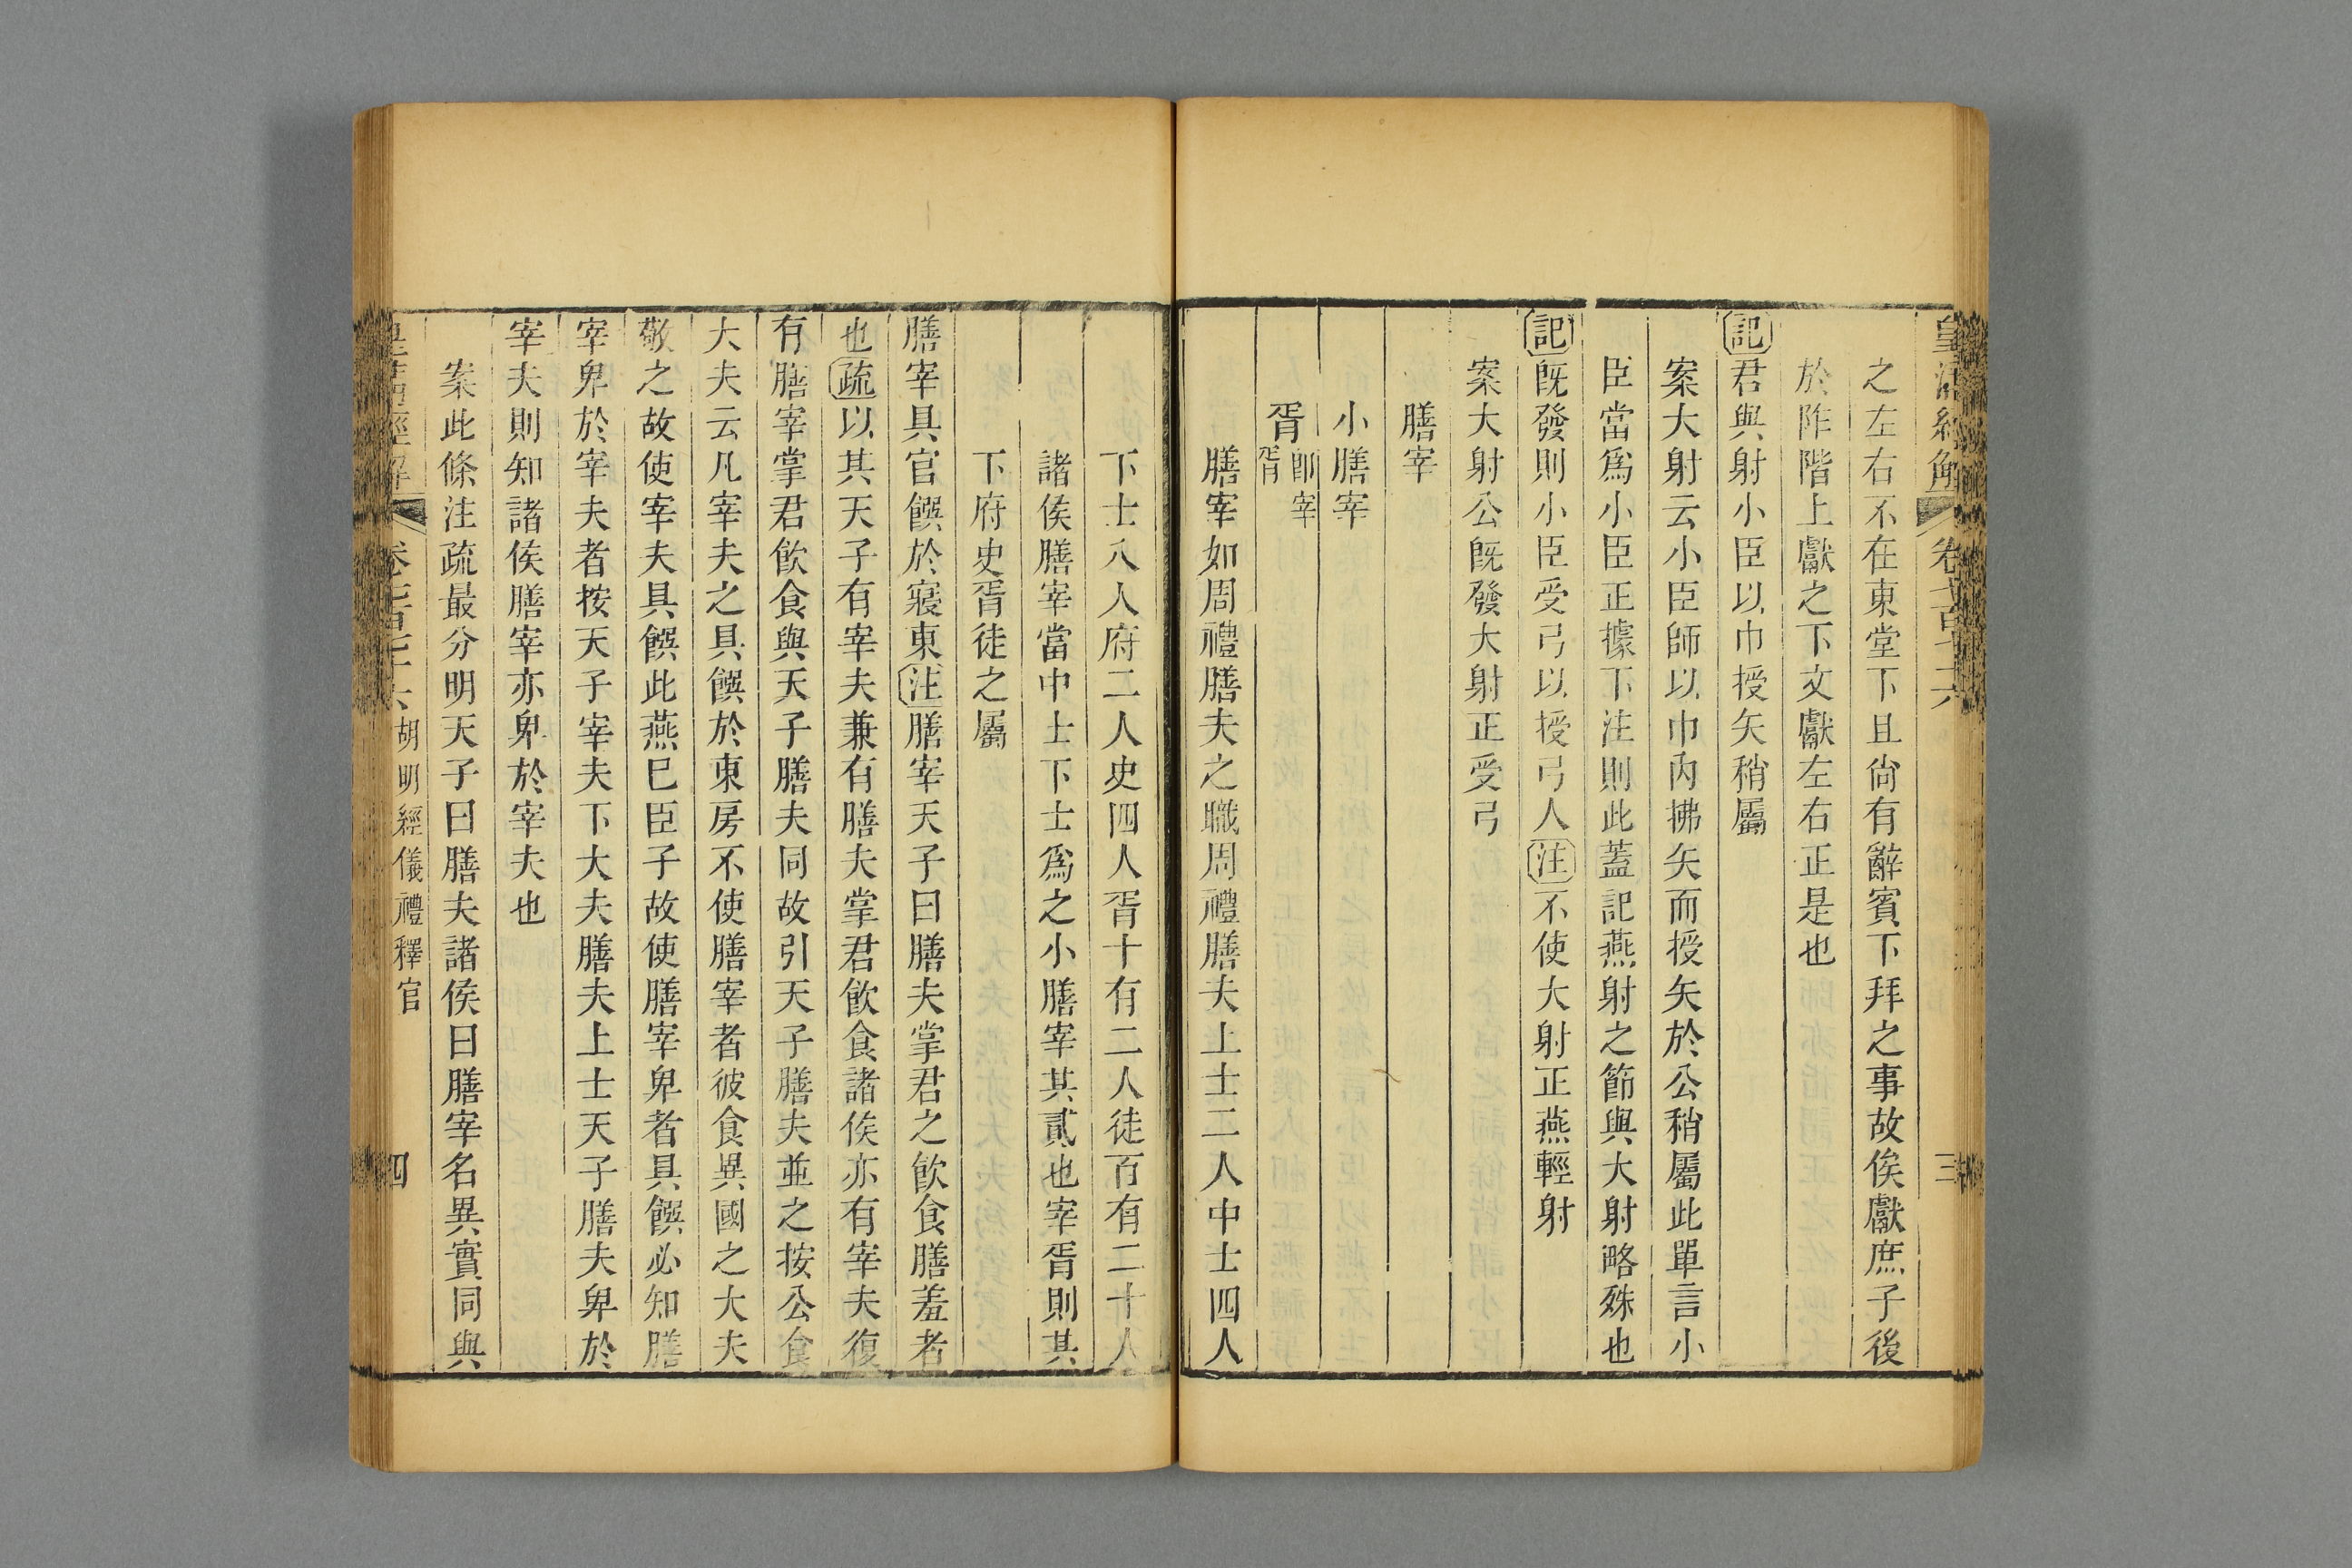 皇清經解 卷七百七十六 三
之左右不在東堂下且尙有辭賓下拜之事故俟獻庶子後
於阼階上獻之下文獻左右正是也
記君與射小臣以巾授矢稍屬
案大射云小臣師以巾內拂矢而授矢於公稍屬此單言小
臣當爲小臣正據下注則此蓋記燕射之節與大射略殊也
記旣發則小臣受弓以授弓人注不使大射正燕輕射
案大射公旣發大射正受弓
膳宰
小膳宰
胥卽宰胥
膳宰如周禮膳夫之職周禮膳夫上士二人中士四人
下士八人府二人史四人胥十有二人徒百有二十人
諸侯膳宰當中士下士爲之小膳宰其貳也宰胥則其
下府史胥徒之屬
膳宰具官饌於寢東注膳宰天子曰膳夫掌君之飮食膳羞者
也疏以其天子有宰夫兼有膳夫掌君飮食諸侯亦有宰夫復
有膳宰掌君飮食與天子膳夫同故引天子膳夫並之按公食
大夫云凡宰夫之具饌於東房不使膳宰者彼食異國之大夫
敬之故使宰夫具饌此燕巳臣子故使膳宰卑者具饌必知膳
宰卑於宰夫者按天子宰夫下大夫膳夫上士天子膳夫卑於
宰夫則知諸侯膳宰亦卑於宰夫也
案此條注疏最分明天子曰膳夫諸侯曰膳宰名異實同與
皇清經解 卷七百七十六 胡明經儀禮釋官 四